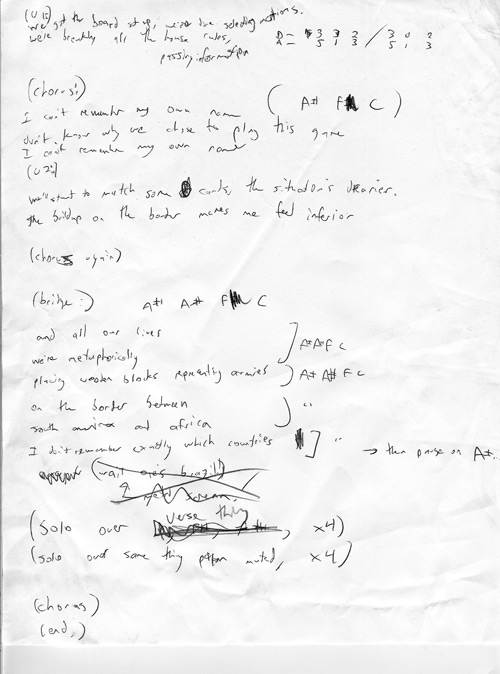 (V 1:)
we got the board set up, we're selecting nations.
we're breaking all the house rules,
passing information
D= 3 3 2 / 3 0 2
A= 5 1 3 / 5 1 3
(chorus:)
I can't remember my own name (A# F C)
don't know why we chose to play this game
I can't remember my own name
(V 2:)
we'll start to match some cards, the situation's drearier.
the buildup on the border makes me feel inferior
(chorus again)
(bridge:) A# A# F C
and all our lives
we're metaphorically ] A# A# F C
placing wooden blocks representing armies ) A# A# F C
on the border between
south america and africa ) "
I don't remember exactly which countries ] " → then pause on A#...
(wait one's brazil!)
(solo over verse thing, x4)
(solo over same thing muted, x4)
(chorus)
(end.)